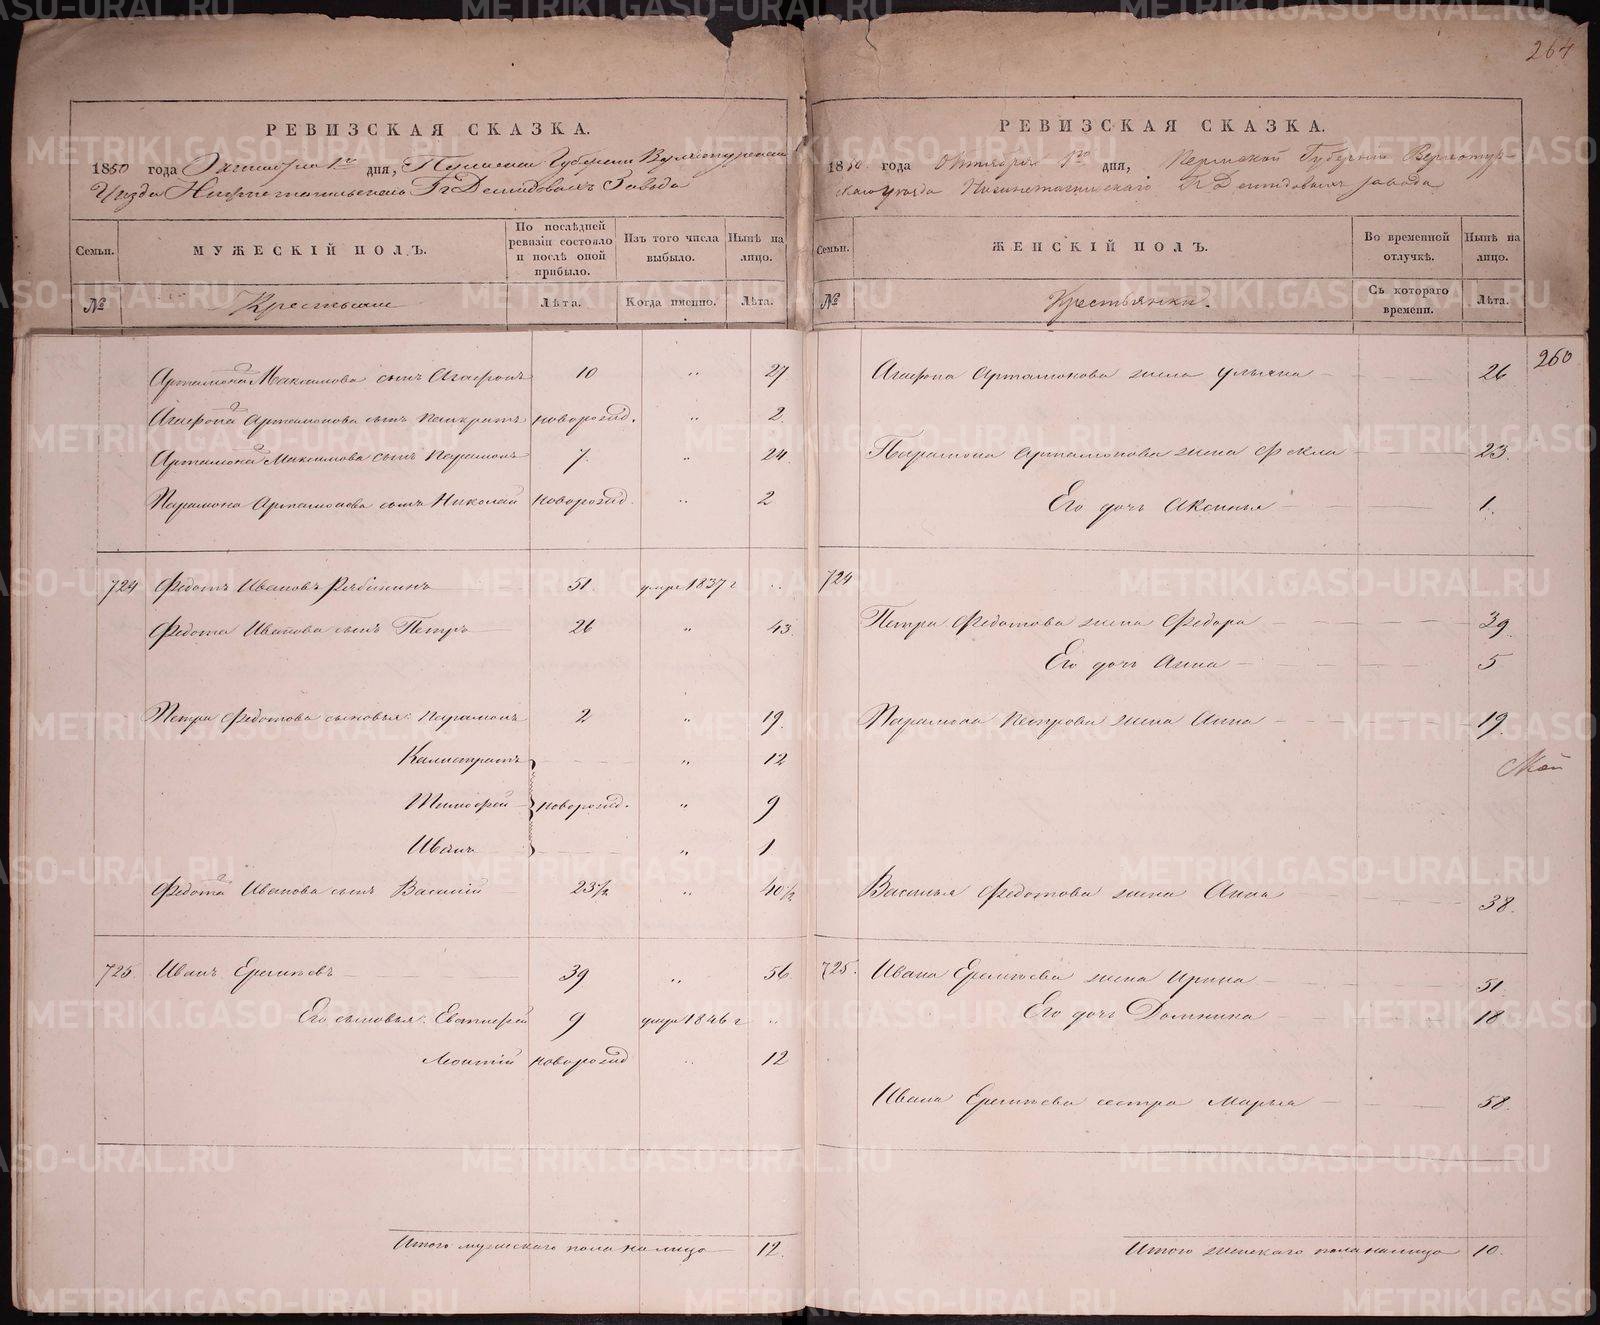 264
РЕВИЗСКАЯ СКАЗКА.
1850 года Октября 1го дня, Пермской Губернии Верхотурскаго
Уѣзда Нижнетагильскаго Гг Демидовыхъ Завода
Семьи.
МУЖЕСКІЙ ПОЛЪ.
По послѣдней ревизіи состояло и послѣ оной прибыло.
Изъ того числа выбыло.
Нынѣ на лицо.
№
Крестьяне
Лѣта.
Когда именно.
Лѣта.
Артамона Максимова сынъ Агафонъ 10 " 27
Агафона Артамонова сынъ Панкратъ новорожд. " 2
Артамона Максимова сынъ Парамонъ 7. " 24
Парамона Артамонова сынъ Николай новорожд. " 2
724 Федотъ Ивановъ Рябининъ 51. умре 1837 г "
Федота Иванова сынъ Петръ 26 " 43.
Петра Федотова сыновья: Парамонъ 2 " 19.
Калистратъ " 12
Тимофей новорожд. " 9
Иванъ " 1
Федота Иванова сынъ Василій 23½ " 40½
725. Иванъ Еремѣевъ 39 " 56
Его сыновья: Евстифей 9 умре 1846 г "
Леонтій новорожд " 12
Итого мужескаго пола на лицо 12.
РЕВИЗСКАЯ СКАЗКА.
1850. года Октября 1го дня, Пермской Губерніи Верхотур-
скаго уѣзда Нижнетагильскаго Гг Демидовыхъ завода
Семьи.
ЖЕНСКІЙ ПОЛЪ.
Во временной отлучкѣ.
Нынѣ на лицо.
№
Крестьянки.
Съ котораго времени.
Лѣта.
260
Агафона Артамонова жена Ульяна 26
Парамона Артамонова жена Фекла 23.
Его дочь Аксинья 1.
724
Петра Федотова жена Федора 39.
Его дочь Анна 5
Парамона Петрова жена Анна 19.
Василья Федотова жена Анна 38.
725. Ивана Еремѣева жена Ирина 51.
Его дочь Домника 18
Ивана Еремѣева сестра Марья 58.
Итого женскаго пола на лицо 10.
METRIKI.GASO-URAL.RU